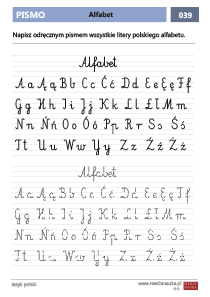 PISMO
Alfabet
039
Napisz odręcznym pismem wszystkie litery polskiego alfabetu.
Alfabet
Aa Ąą Bb Cc Ćć Dd Ee Ęę Ff
Gg Hh Ii Jj Kk Ll Łł Mm
Nn Ńń Oo Óó Pp Rr Ss Śś
Tt Uu Ww Yy Zz Źź Żż
Alfabet
Aa Ąą Bb Cc Ćć Dd Ee Ęę Ff
Gg Hh Ii Jj Kk Ll Łł Mm
Nn Ńń Oo Óó Pp Rr Ss Śś
Tt Uu Ww Yy Zz Źź Żż
Język polski
www.medianauka.pl